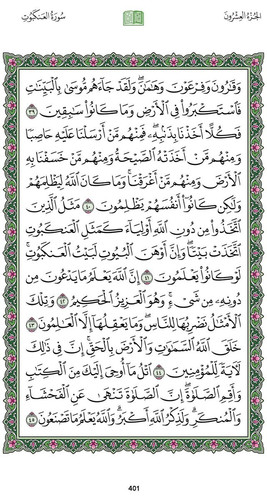 الجزء العشرون
سورة العنكبوت
وَقَٰرُونَ وَفِرْعَوْنَ وَهَٰمَٰنَ ۖ وَلَقَدْ جَآءَهُم مُّوسَىٰ بِٱلْبَيِّنَٰتِ
فَٱسْتَكْبَرُوا۟ فِى ٱلْأَرْضِ وَمَا كَانُوا۟ سَٰبِقِينَ ٣٩
فَكُلًّا أَخَذْنَا بِذَنۢبِهِۦ ۖ فَمِنْهُم مَّنْ أَرْسَلْنَا عَلَيْهِ حَاصِبًا
وَمِنْهُم مَّنْ أَخَذَتْهُ ٱلصَّيْحَةُ وَمِنْهُم مَّنْ خَسَفْنَا بِهِ
ٱلْأَرْضَ وَمِنْهُم مَّنْ أَغْرَقْنَا ۚ وَمَا كَانَ ٱللَّهُ لِيَظْلِمَهُمْ
وَلَٰكِن كَانُوٓا۟ أَنفُسَهُمْ يَظْلِمُونَ ٤٠ مَثَلُ ٱلَّذِينَ
ٱتَّخَذُوا۟ مِن دُونِ ٱللَّهِ أَوْلِيَآءَ كَمَثَلِ ٱلْعَنكَبُوتِ
ٱتَّخَذَتْ بَيْتًا ۖ وَإِنَّ أَوْهَنَ ٱلْبُيُوتِ لَبَيْتُ ٱلْعَنكَبُوتِ ۖ
لَوْ كَانُوا۟ يَعْلَمُونَ ٤١ إِنَّ ٱللَّهَ يَعْلَمُ مَا يَدْعُونَ مِن
دُونِهِۦ مِن شَىْءٍ ۚ وَهُوَ ٱلْعَزِيزُ ٱلْحَكِيمُ ٤٢ وَتِلْكَ
ٱلْأَمْثَٰلُ نَضْرِبُهَا لِلنَّاسِ ۖ وَمَا يَعْقِلُهَآ إِلَّا ٱلْعَٰلِمُونَ ٤٣
خَلَقَ ٱللَّهُ ٱلسَّمَٰوَٰتِ وَٱلْأَرْضَ بِٱلْحَقِّ ۚ إِنَّ فِى ذَٰلِكَ
لَءَايَةً لِّلْمُؤْمِنِينَ ٤٤ ٱتْلُ مَآ أُوحِىَ إِلَيْكَ مِنَ ٱلْكِتَٰبِ
وَأَقِمِ ٱلصَّلَوٰةَ ۖ إِنَّ ٱلصَّلَوٰةَ تَنْهَىٰ عَنِ ٱلْفَحْشَآءِ
وَٱلْمُنكَرِ ۗ وَلَذِكْرُ ٱللَّهِ أَكْبَرُ ۗ وَٱللَّهُ يَعْلَمُ مَا تَصْنَعُونَ ٤٥
401